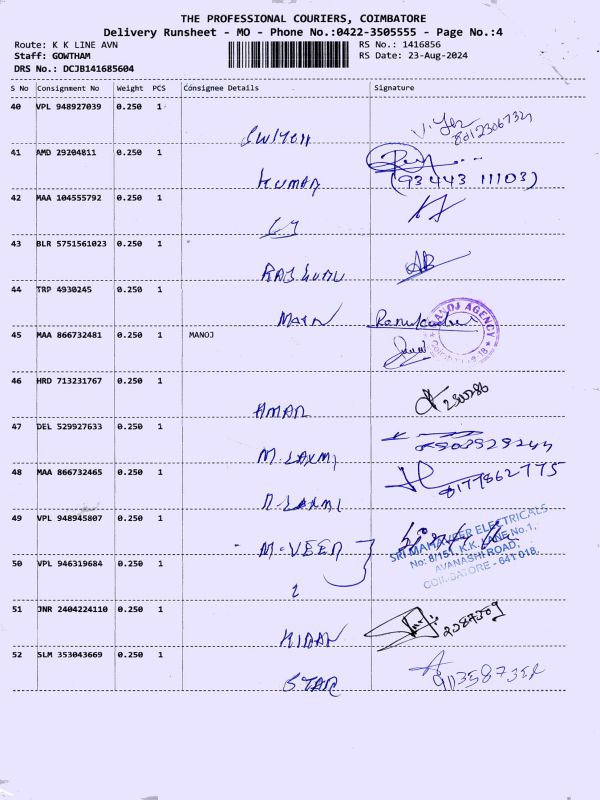 THE PROFESSIONAL COURIERS, COIMBATORE
Delivery Runsheet - MO - Phone No.:0422-3505555 - Page No.:4
Route: K K LINE AVN
RS No.: 1416856
Staff: GOWTHAM
RS Date: 23-Aug-2024
DRS No.: DCJB141685604
S No Consignment No Weight PCS Consignee Details Signature
40 VPL 948927039 0.250 1
41 AMD 29204811 0.250 1
KUMAR (93443 11103)
42 MAA 104555792 0.250 1
43 BLR 5751561023 0.250 1
44 TRP 4930245 0.250 1
MAIN
MANOJ AGENCY
45 MAA 866732481 0.250 1 MANOJ
46 HRD 713231767 0.250 1
AMAR
47 DEL 529927633 0.250 1
M. LAXMI
48 MAA 866732465 0.250 1
8177862775
49 VPL 948945807 0.250 1
M. VEER
SRI MAHAVEER ELECTRICALS
No: 8/151, K.K. LANE No.1,
AVANASHI ROAD,
COIMBATORE - 641 018.
50 VPL 946319684 0.250 1
51 JNR 2404224110 0.250 1
KIRAN
52 SLM 353043669 0.250 1
STAR